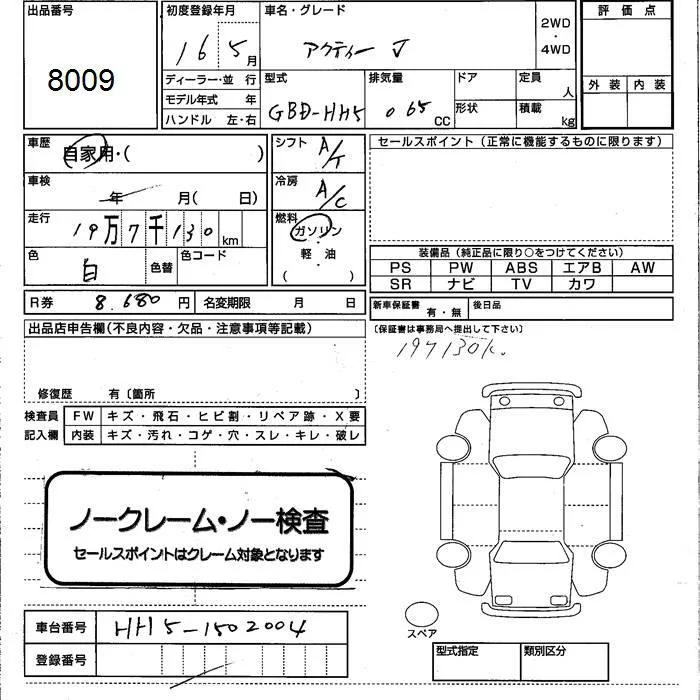 出品番号
8009
初度登録年月
16 5月
車名・グレード
アクティー J
2WD
・
4WD
評価点
外装 内装
ディーラー・並行
モデル年式 年
ハンドル 左・右
型式
GBD-HH5
排気量
0 65 CC
ドア
形状
定員
人
積載
kg
車歴
自家用・( )
車検
年 月( 日)
走行
19万7千130km
色
白
色替
色コード
シフト
A/T
冷房
A/C
燃料
ガソリン
・
軽油
( )
セールスポイント(正常に機能するものに限ります)
装備品(純正品に限り○をつけてください)
PS PW ABS エアB AW
SR ナビ TV カワ
R券 8.680円 名変期限 月 日
新車保証書 有・無 後日品
(保証書は事務局へ提出して下さい)
197130k.
出品店申告欄(不良内容・欠品・注意事項等記載)
修復歴 有〔箇所 〕
検査員記入欄
FW キズ・飛石・ヒビ割・リペア跡・X要
内装 キズ・汚れ・コゲ・穴・スレ・キレ・破レ
ノークレーム・ノー検査
セールスポイントはクレーム対象となります
スペア
車台番号 HH15-1502004
登録番号
型式指定 類別区分